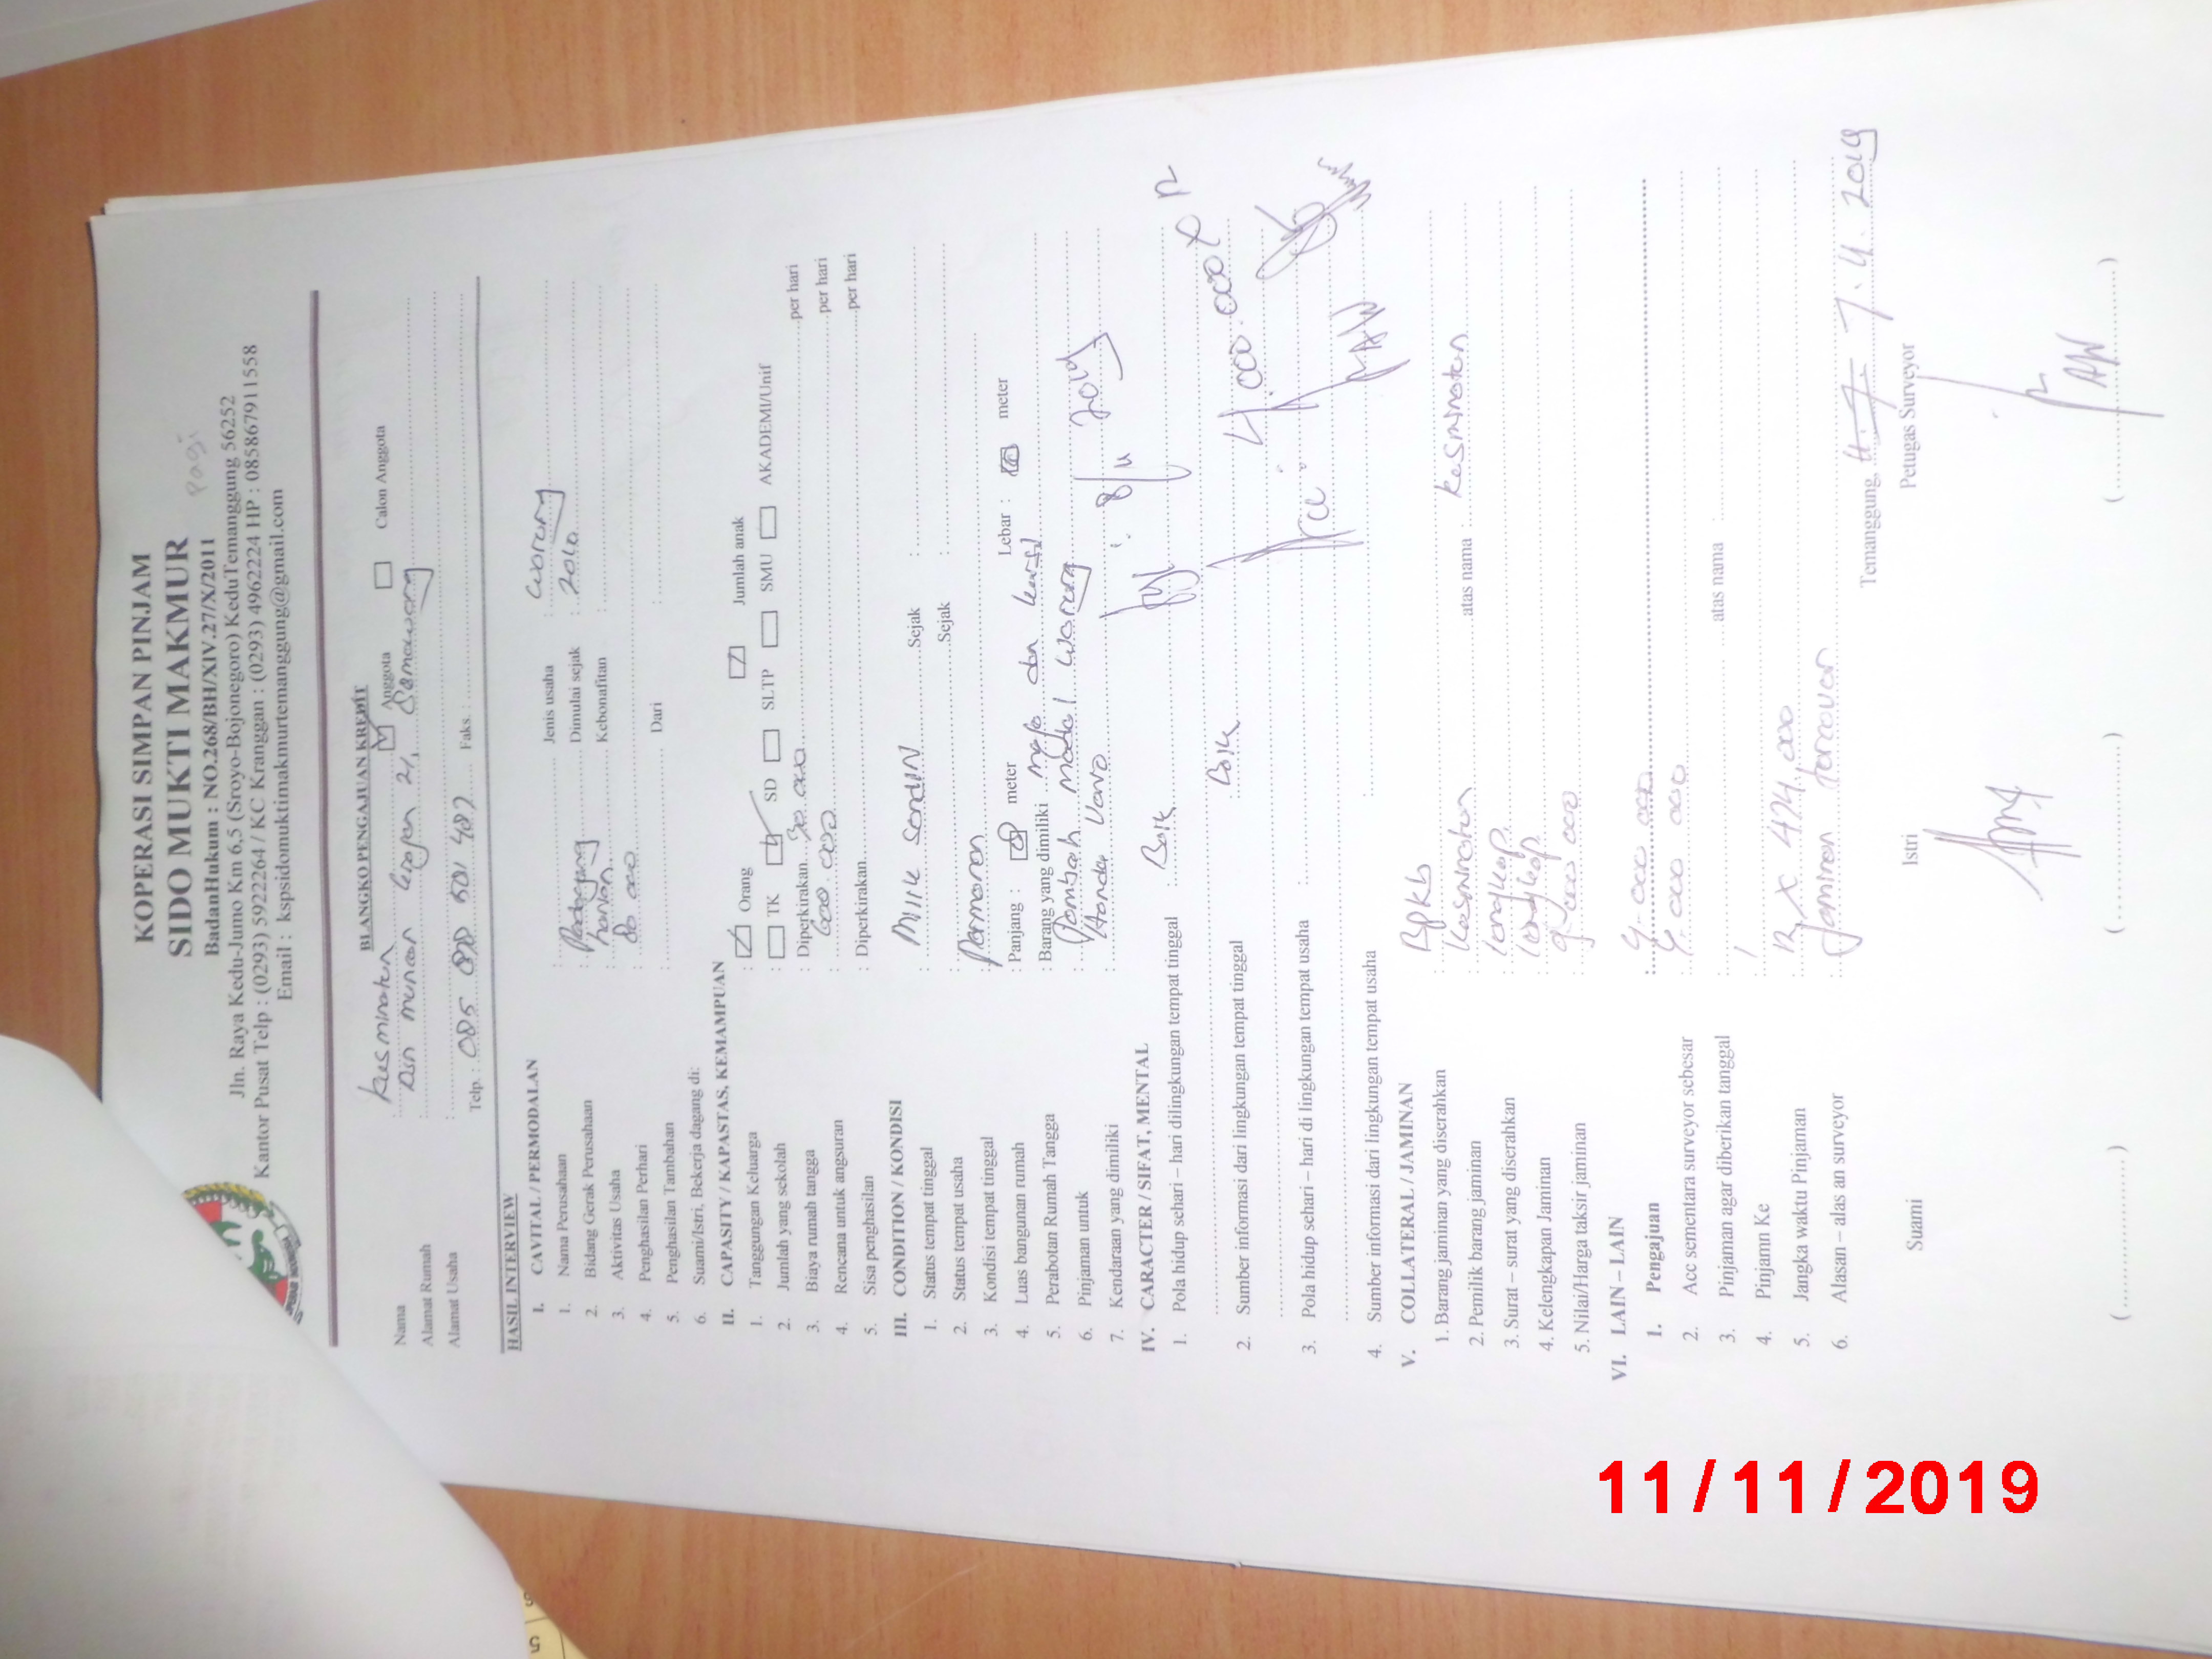 KOPERASI SIMPAN PINJAM
SIDO MUKTI MAKMUR
pagi
BadanHukum : NO.268/BH/XIV.27/X/2011
Jln. Raya Kedu-Jumo Km 6,5 (Sroyo-Bojonegoro) KeduTemanggung 56252
Kantor Pusat Telp : (0293) 5922264 / KC Kranggan : (0293) 4962224 HP : 085867911558
Email : kspsidomuktimakmurtemanggung@gmail.com
BLANGKO PENGAJUAN KREDIT
Anggota Calon Anggota
Nama kusminaton
Alamat Rumah
Alamat Usaha
Telp. : Faks. :
HASIL INTERVIEW
I. CAVITAL / PERMODALAN
1. Nama Perusahaan : Jenis usaha : Warung
2. Bidang Gerak Perusahaan : Pedagang Dimulai sejak : 2010
3. Aktivitas Usaha : harian Kebonafitan :
4. Penghasilan Perhari : 80 000
5. Penghasilan Tambahan
6. Suami/Istri, Bekerja dagang di: : Dari :
II. CAPASITY / KAPASTAS, KEMAMPUAN
1. Tanggungan Keluarga : Orang Jumlah anak
2. Jumlah yang sekolah : TK SD SLTP SMU AKADEMI/Unif
3. Biaya rumah tangga : Diperkirakan 30.000 per hari
4. Rencana untuk angsuran 600 000 per hari
5. Sisa penghasilan : Diperkirakan per hari
III. CONDITION / KONDISI
1. Status tempat tinggal : Milik Sendiri Sejak :
2. Status tempat usaha : Sejak :
3. Kondisi tempat tinggal Permanen
4. Luas bangunan rumah : Panjang : meter Lebar : meter
5. Perabotan Rumah Tangga : Barang yang dimiliki meja dan kursi
6. Pinjaman untuk : Tambah modal Warung
7. Kendaraan yang dimiliki : Honda Vario 2019
IV. CARACTER / SIFAT, MENTAL
1. Pola hidup sehari – hari dilingkungan tempat tinggal : Baik
2. Sumber informasi dari lingkungan tempat tinggal : Baik
4.000.000
3. Pola hidup sehari – hari di lingkungan tempat usaha :
acc
4. Sumber informasi dari lingkungan tempat usaha :
V. COLLATERAL / JAMINAN
1. Barang jaminan yang diserahkan : BPKB
2. Pemilik barang jaminan : kusminaton atas nama : kusminaton
3. Surat – surat yang diserahkan : lengkap
4. Kelengkapan Jaminan : lengkap
5. Nilai/Harga taksir jaminan : 9.000 000
VI. LAIN – LAIN
1. Pengajuan : 4.000 000
2. Acc sementara surveyor sebesar : 4 000 000
3. Pinjaman agar diberikan tanggal : atas nama
4. Pinjamn Ke : 1
5. Jangka waktu Pinjaman : 12 x 424,000
6. Alasan – alas an surveyor : Jaminan tercover
Temanggung, 7. 4. 2019
Suami Istri Petugas Surveyor
AW
(..................) (..................) (..................)
11/11/2019